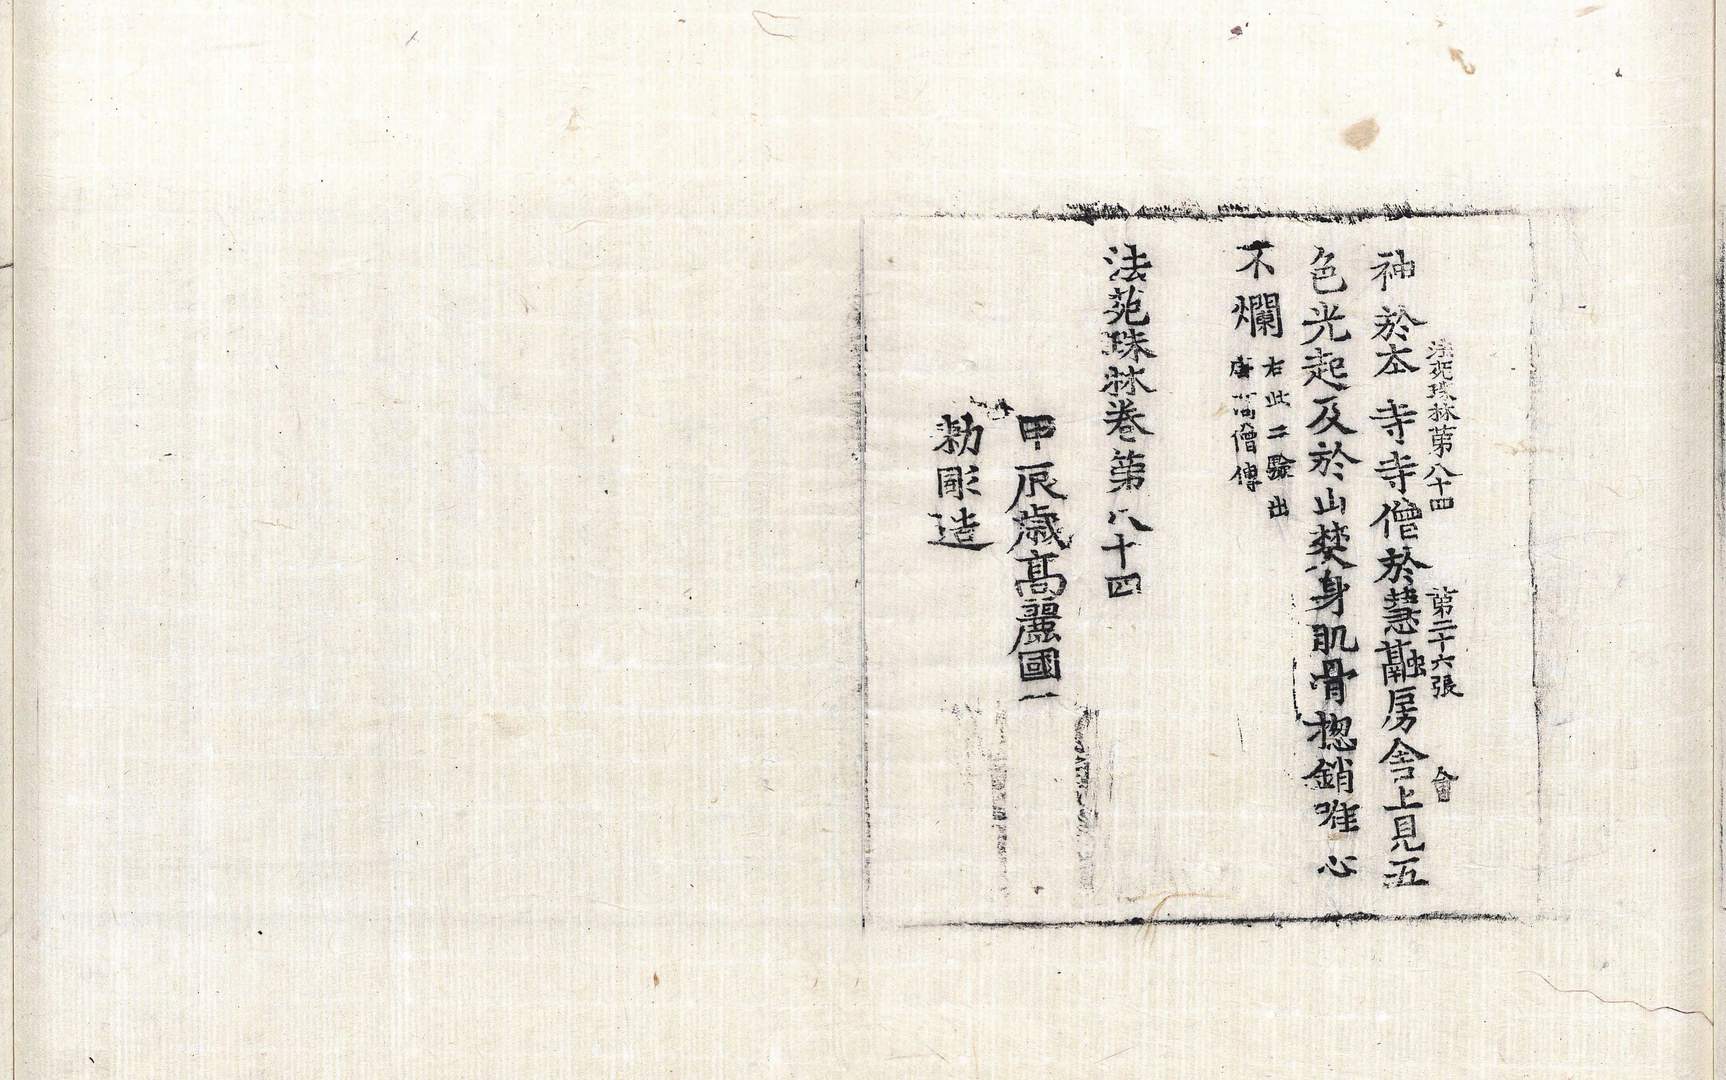 法苑珠林第八十四 第二十六張 會
神於本寺寺僧於慧融房舍上見五
色光起及於山焚身肌骨揔銷唯心
不爛 右此二驗出
唐高僧傳
法苑珠林卷第八十四
甲辰歲高麗國
勑彫造